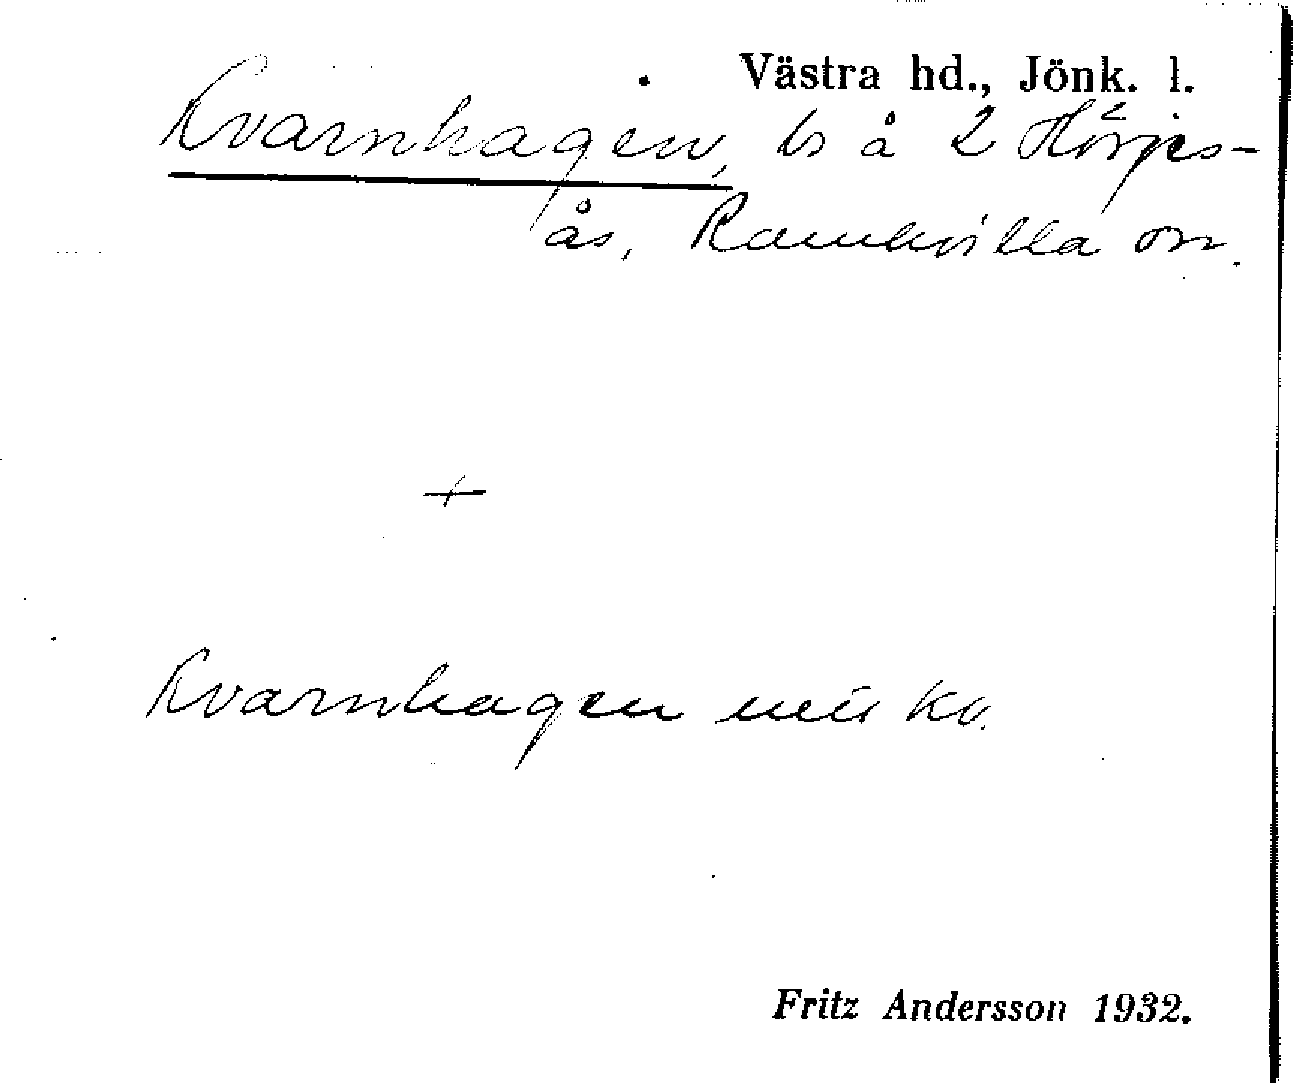 Västra hd., Jönk. l.
Kvarnhagen, ls å 2 Hörjes-
ås, Ramkvilla sn.
+
Kvarnhagen Kv.
Fritz Andersson 1932.